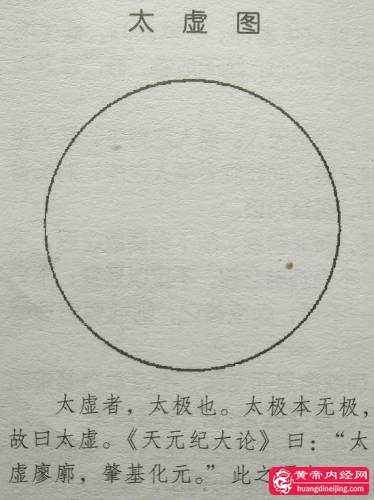 太虚图
太虚者，太极也。太极本无极，
故曰太虚。《天元纪大论》曰：“太
虚廖廓，肇基化元。”此之
黄帝内经网
huangdineijing.com